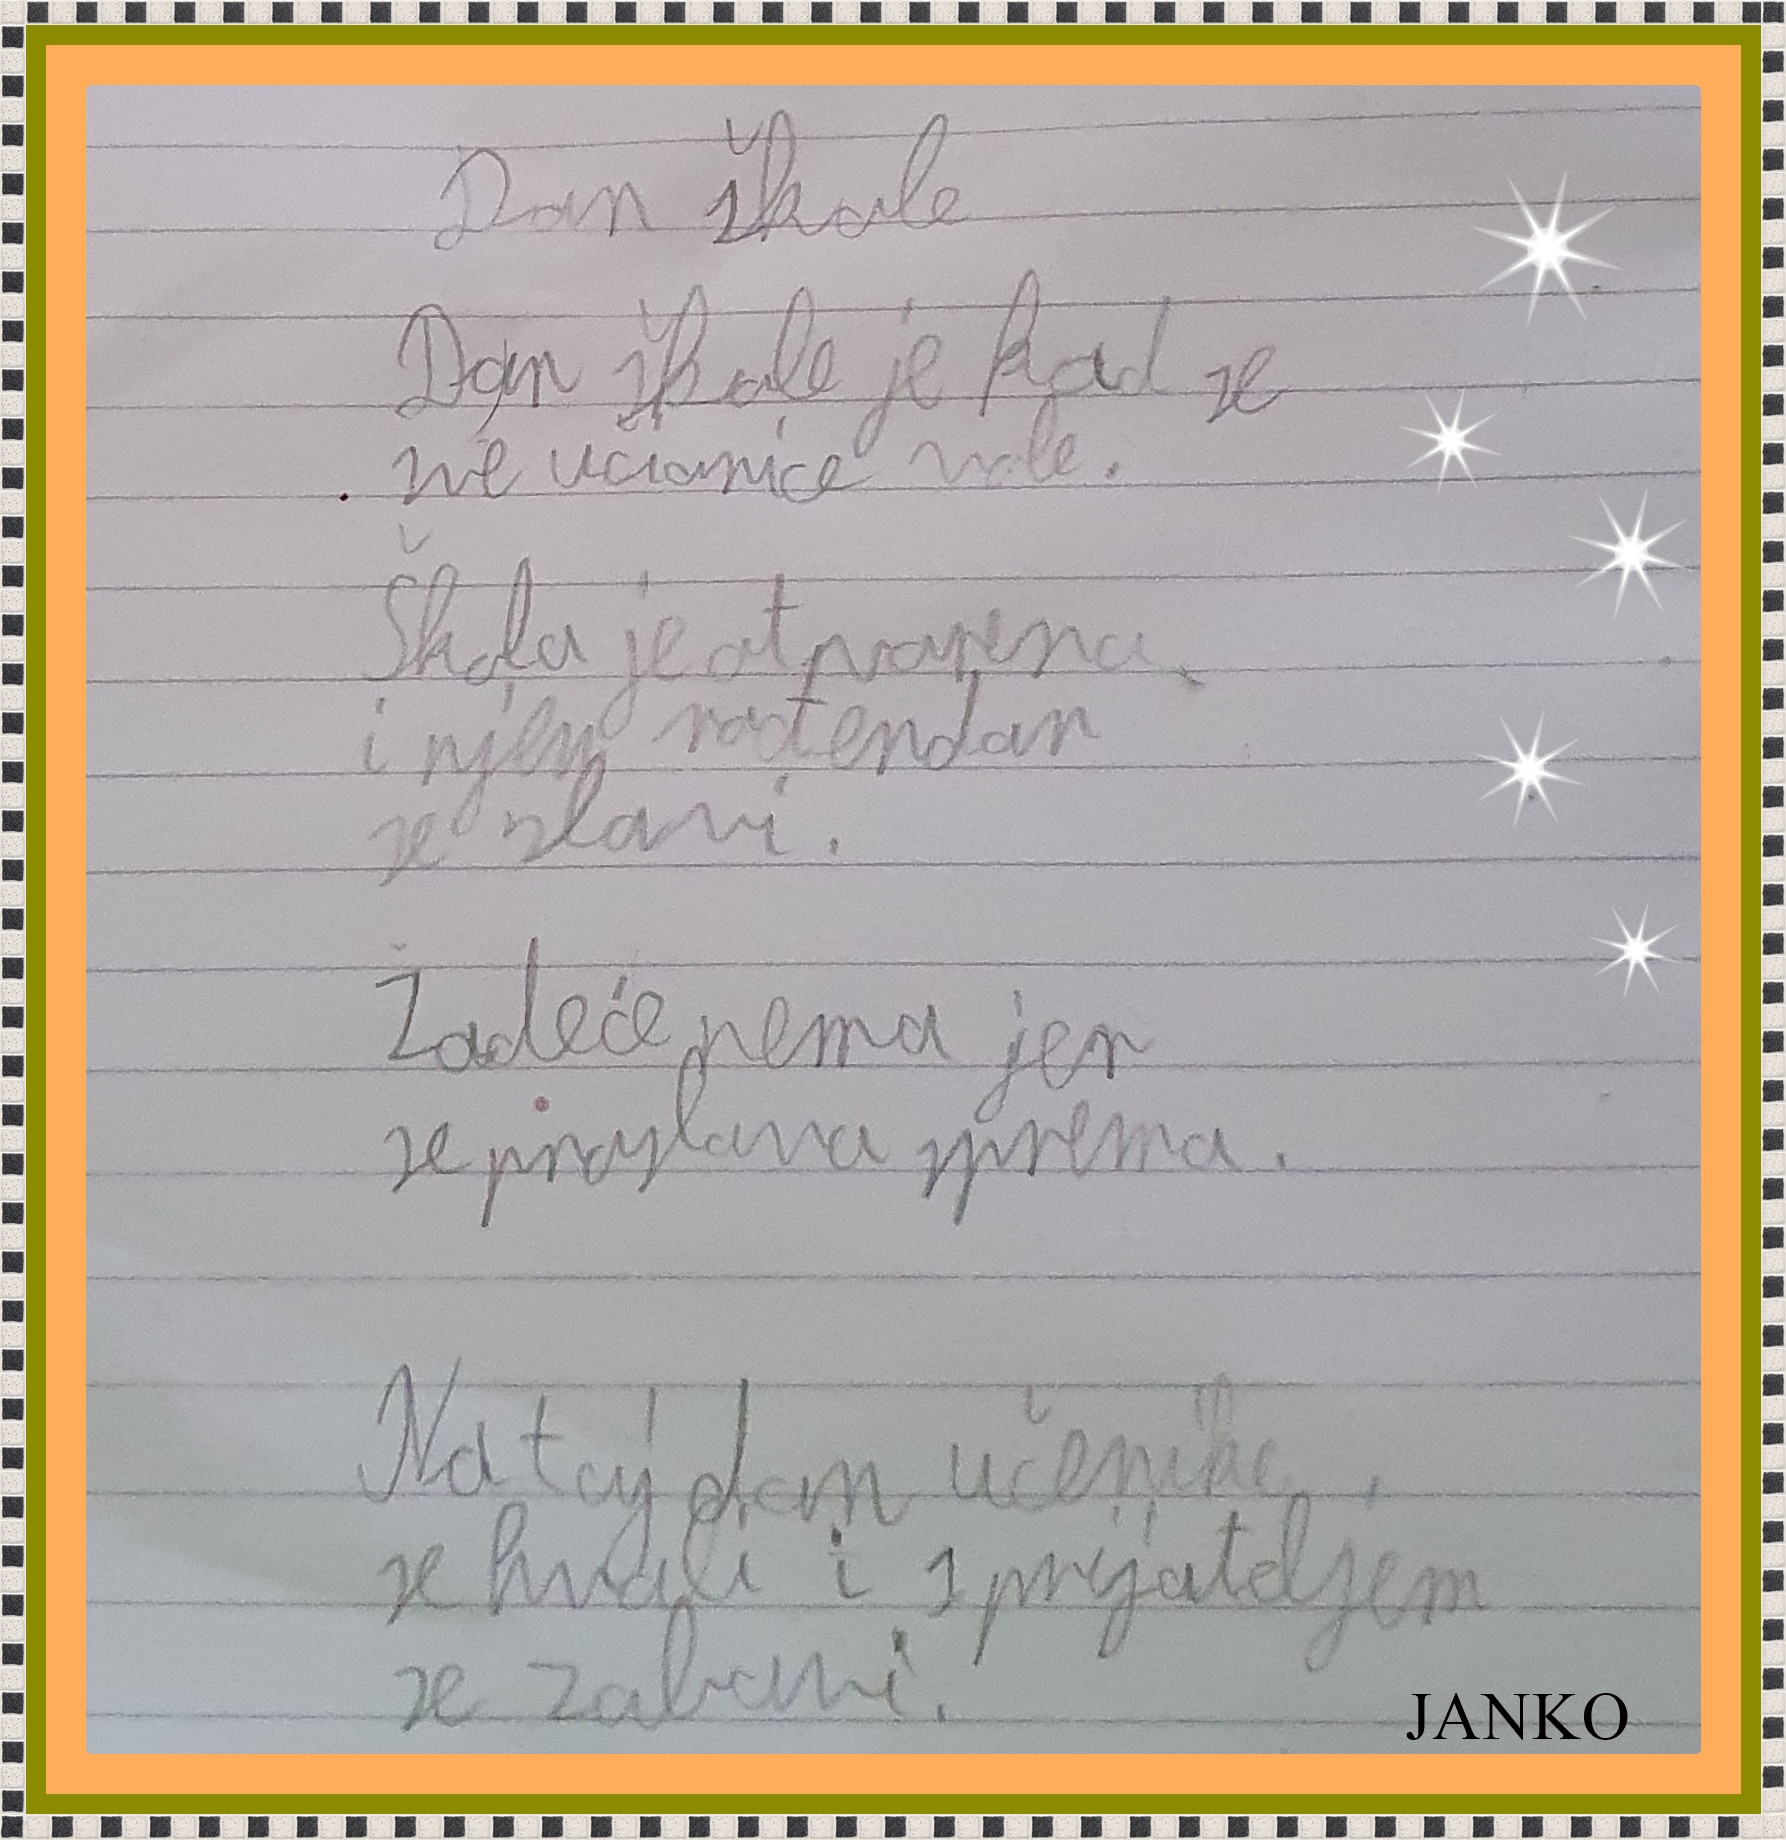 Dan škole
Dan škole je kad se
sve učionice vole.
Škola je otvorena
i njen rođendan
se slavi.
Zadaće nema jer
se proslava sprema.
Na taj dan učenike,
se hvali i s prijateljem
se zabavi.
JANKO